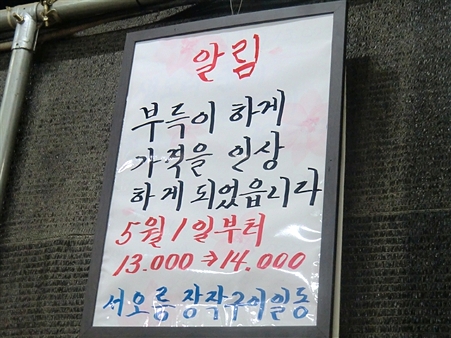 알림
부득이 하게
가격을 인상
하게 되었읍니다
5월 1일부터
13.000 → 14.000
서오릉 장작구이 일동